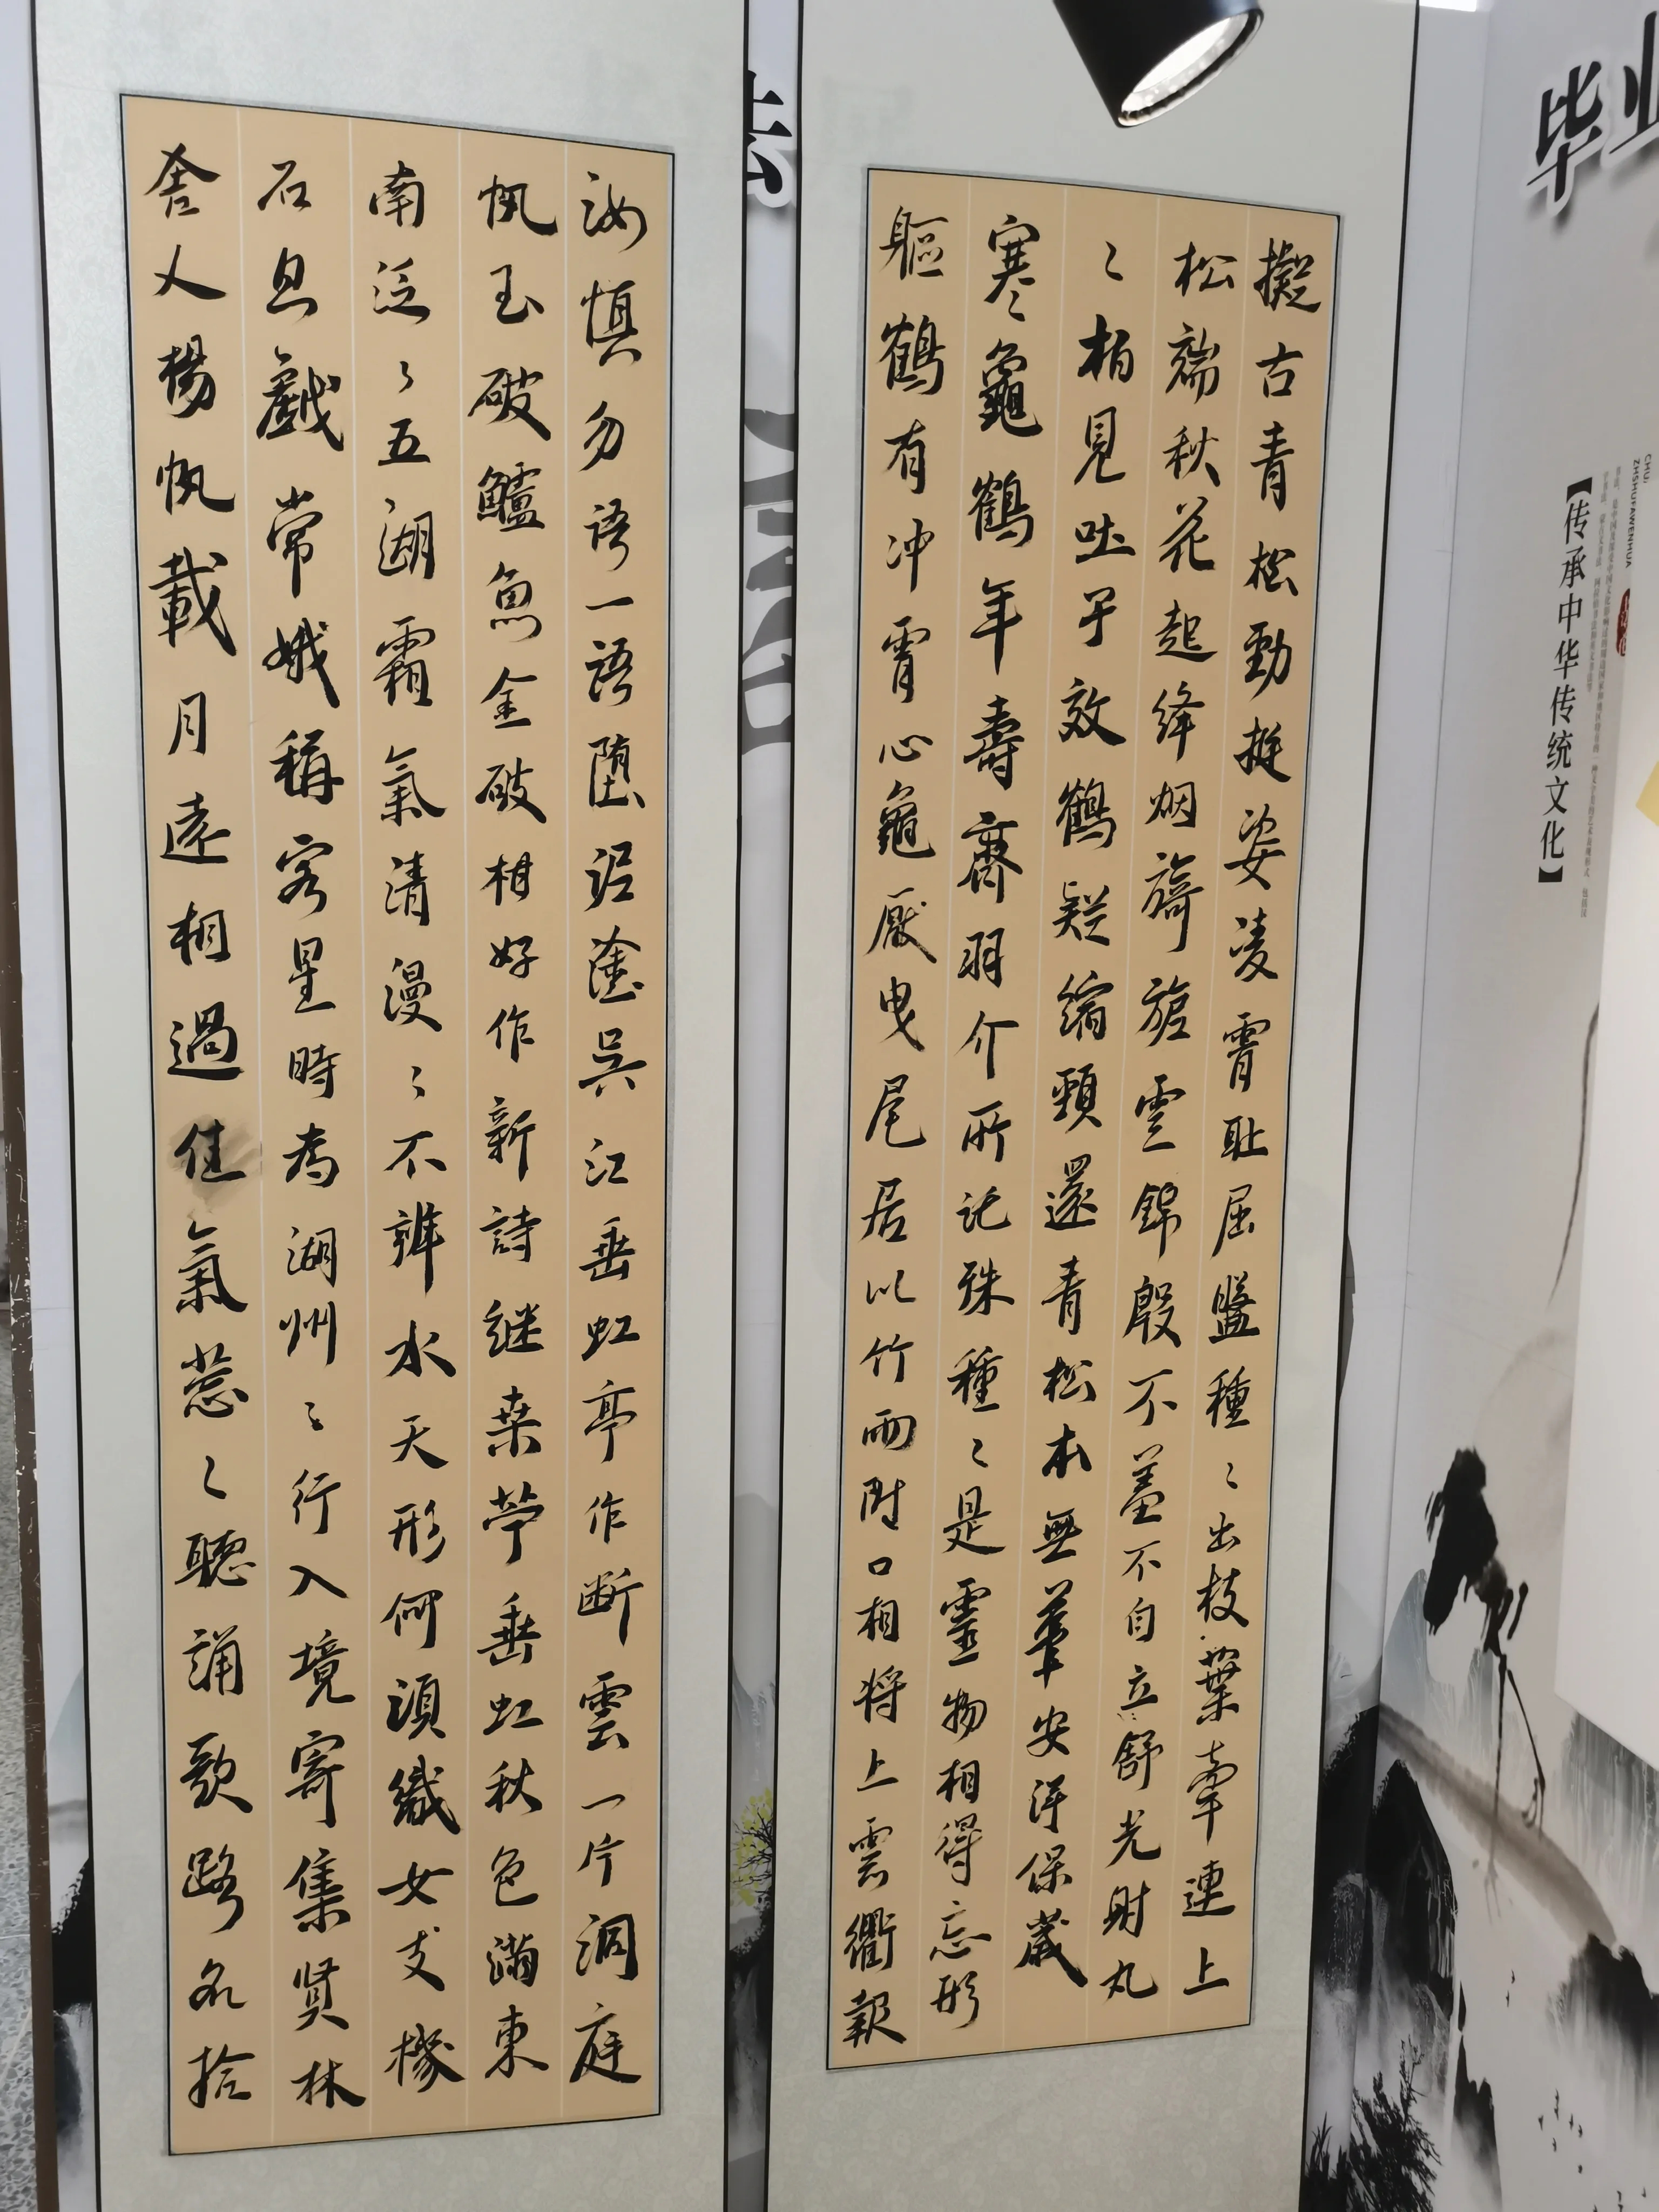 擬古青松勁挺姿凌霄恥屈盤種〻出枝葉牽連上
松端秋花起絳烟旖旎雲錦殷不羞不自立舒光射丸
〻柏見吐子效鶴疑縮頸還青松本無華安得保歲
寒龜鶴年壽齊羽介所託殊種〻是靈物相得忘形
軀鶴有冲霄心龜厭曳尾居以竹兩附口相將上雲衢報
汝慎勿語一語墮泥塗吳江垂虹亭作斷雲一片洞庭
帆玉破鱸魚金破柑好作新詩繼桑苧垂虹秋色滿東
南泛〻五湖霜氣清漫〻不辨水天形何須織女支機
石且戲常娥稱客星時為湖州〻行入境寄集賢林
舍人揚帆載月遠相過佳氣葱〻聽誦歌路不拾
毕业
【传承中华传统文化】
ZHSHUFAWENHUA